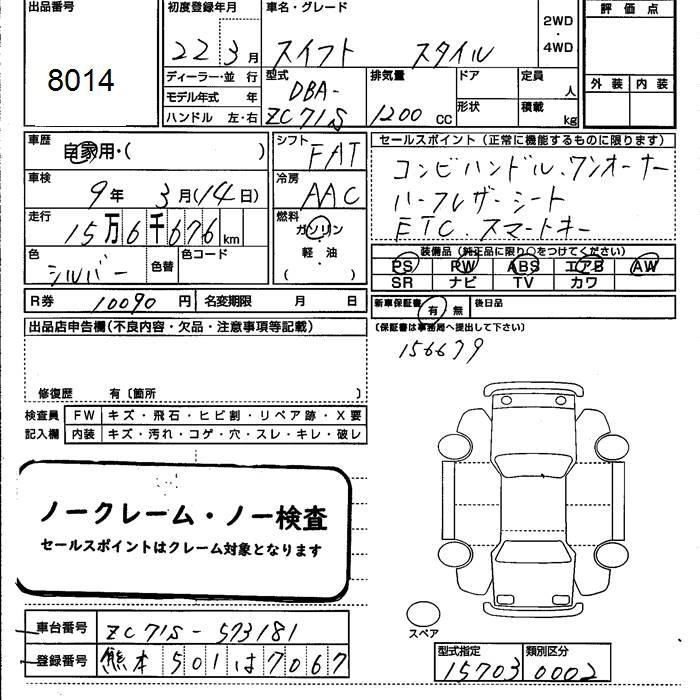 出品番号
8014
初度登録年月
22 3月
車名・グレード
スイフト スタイル
2WD
・
4WD
評価点
外装 内装
ディーラー・並 行
モデル年式 年
ハンドル 左・右
型式
DBA-
ZC71S
排気量
1200 cc
ドア
形状
定員
人
積載
kg
車歴
自家用・( )
シフト
FAT
車検
9年 3月(14日)
冷房
AAC
走行
15万6千676 km
燃料
ガソリン
・
軽・油
( )
色
シルバー
色替
色コード
セールスポイント(正常に機能するものに限ります)
コンビハンドル、ワンオーナー
ハーフレザーシート
ETC、スマートキー
装備品(純正品に限り○をつけてください)
PS PW ABS エアB AW
SR ナビ TV カワ
R券 10090 円 名変期限 月 日
新車保証書 有 無 後日品
(保証書は事務局へ提出して下さい)
156679
出品店申告欄(不良内容・欠品・注意事項等記載)
修復歴 有〔箇所 〕
検査員 FW キズ・飛石・ヒビ割・リペア跡・X要
記入欄 内装 キズ・汚れ・コゲ・穴・スレ・キレ・破レ
ノークレーム・ノー検査
セールスポイントはクレーム対象となります
車台番号 ZC71S-573181
登録番号 熊本 501 は 7067
スペア
型式指定 類別区分
15703 0002